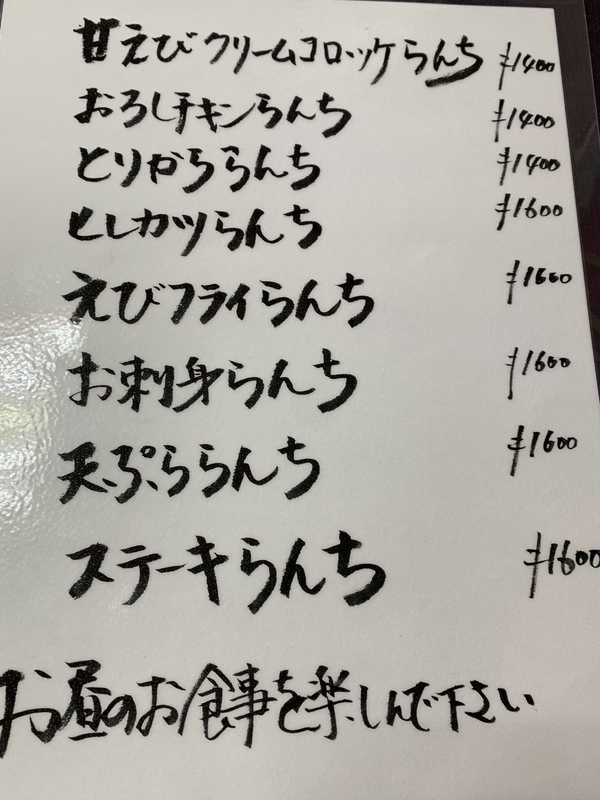 甘えびクリームコロッケらんち ¥1400
おろしチキンらんち ¥1400
とりかららんち ¥1400
ヒレカツらんち ¥1600
えびフライらんち ¥1600
お刺身らんち ¥1600
天ぷららんち ¥1600
ステーキらんち ¥1600
お昼のお食事を楽しんで下さい